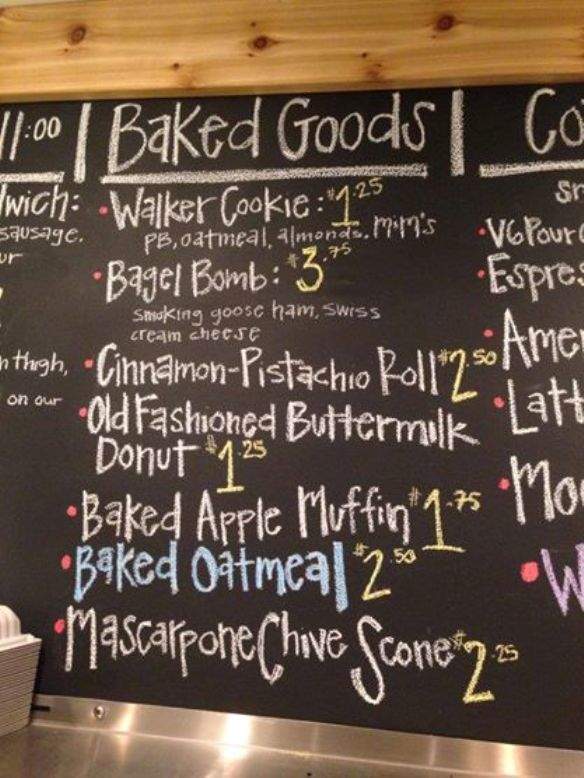 11:00
Baked Goods
Co
wich:
sausage.
ur
n thigh,
on our
• Walker Cookie: $1.25
PB, oatmeal, almonds, m&m's
• Bagel Bomb: $3.75
smoking goose ham, swiss
cream cheese
• Cinnamon-Pistachio Roll $2.50
• Old Fashioned Buttermilk
Donut $1.25
• Baked Apple Muffin $1.75
• Baked Oatmeal $2.50
• Mascarpone Chive Scone $2.25
• V60 Pour
• Espres
• Amer
• Latt
• Mo
• W